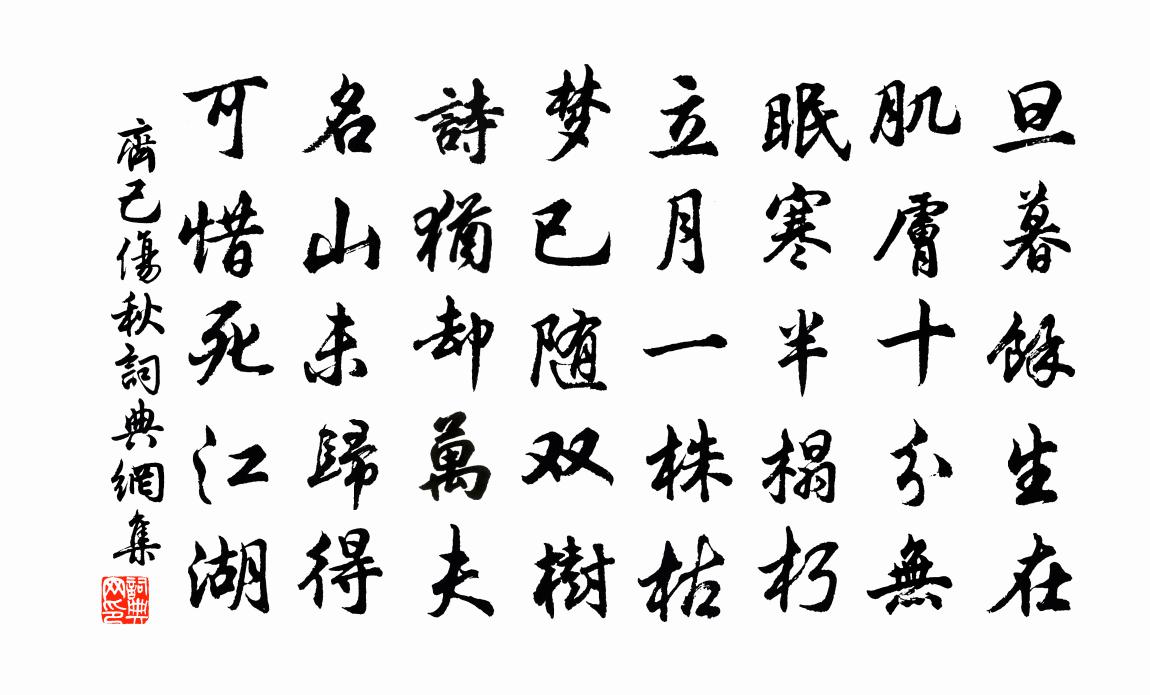 旦暮餘生在
肌膚十分無
眠寒半榻朽
立月一株枯
梦已随双樹
詩猶却萬夫
名山未歸得
可惜死江湖
齊己傷秋詞典網集
詞典